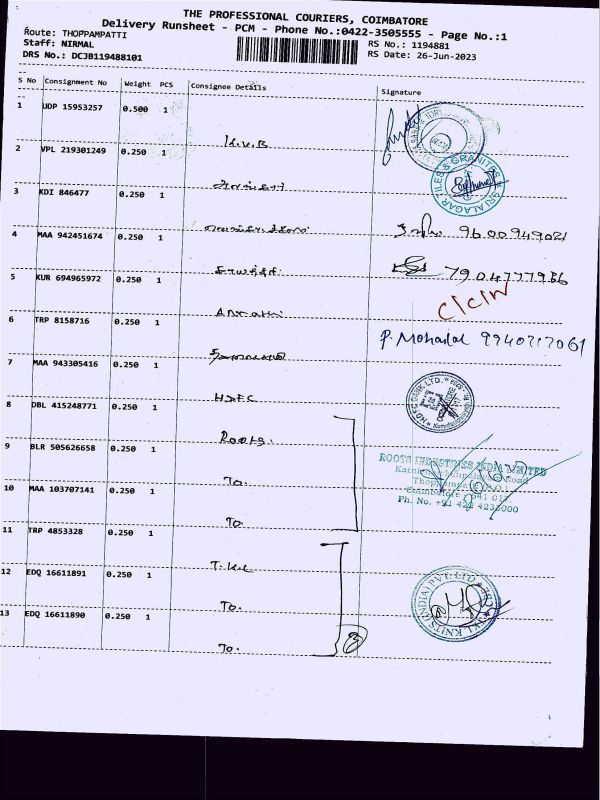 THE PROFESSIONAL COURIERS, COIMBATORE
Delivery Runsheet - PCM - Phone No.:0422-3505555 - Page No.:1
Route: THOPPAMPATTI
Staff: NIRMAL
RS No.: 1194881
DRS No.: DCJB119488101
RS Date: 26-Jun-2023
S No Consignment No Weight PCS Consignee Details Signature
1 UDP 15953257 0.500 1
K.V.B
2 VPL 219301249 0.250 1
TILES & GRANITES * SRI ALAGAR
3 KDI 846477 0.250 1
9600949021
4 MAA 942451674 0.250 1
7904777956
5 KUR 694965972 0.250 1
6 TRP 8158716 0.250 1
P. Mohanlal
7 MAA 943305416 0.250 1
HDFC
8 DBL 415248771 0.250 1
Roots.
9 BLR 505626658 0.250 1
ROOTS INDUSTRIES INDIA LIMITED
To.
Thoppampatti
Coimbatore - 641 017
Ph. No. +91 422 4233000
10 MAA 103707141 0.250 1
To
11 TRP 4853328 0.250 1
T.K.L
12 EDQ 16611891 0.250 1
To.
KNITS (INDIA) PVT LTD
13 EDQ 16611890 0.250 1
3
To.